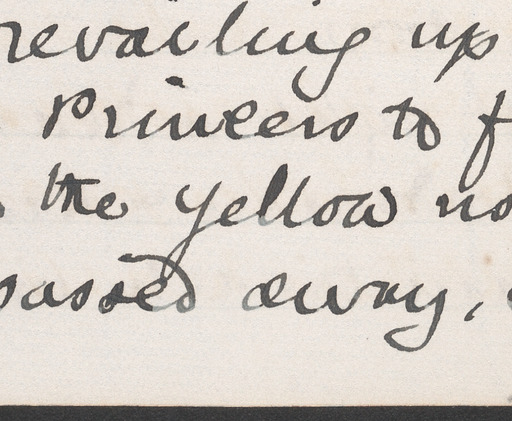 revailing up
Princess to f
the yellow no
passed away,